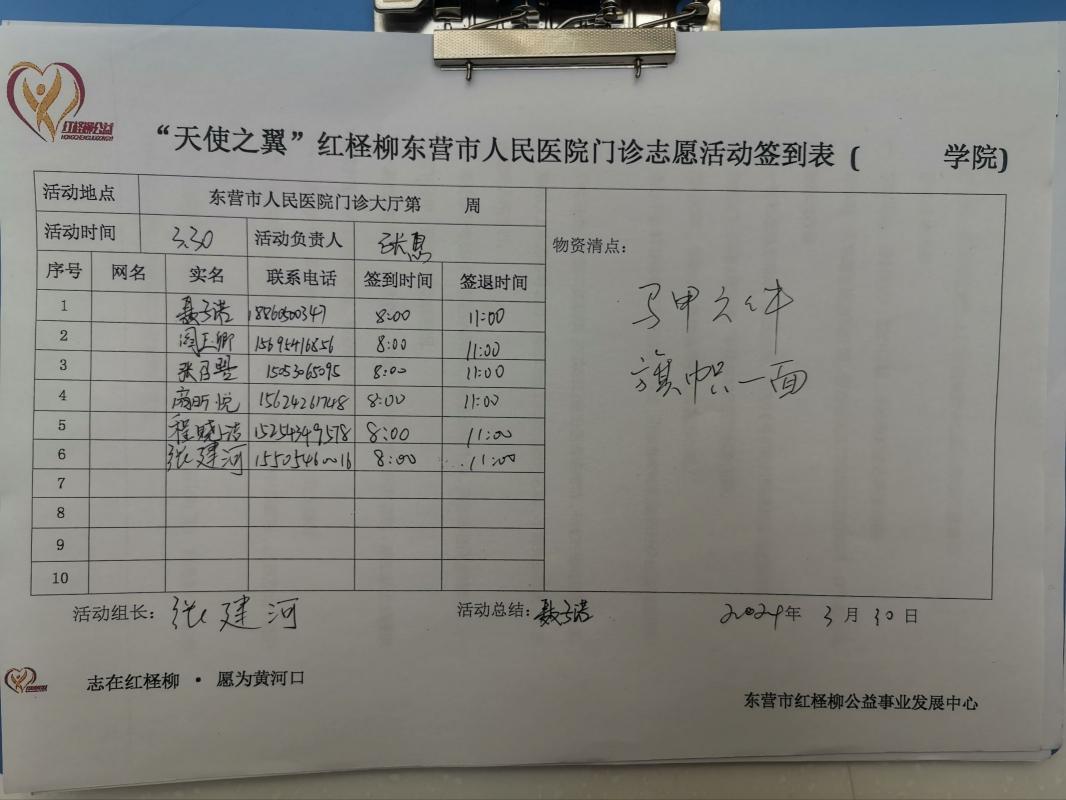 红柽柳公益
HONGCHENGLIUGONGYI
“天使之翼”红柽柳东营市人民医院门诊志愿活动签到表 ( 学院)
活动地点 东营市人民医院门诊大厅第 周
活动时间 3.30 活动负责人 张恩
物资清点：
序号 网名 实名 联系电话 签到时间 签退时间
1 聂子诺 18860500347 8:00 11:00
2 闫玉卿 15695416856 8:00 11:00
3 15053065095 8:00 11:00
4 高昕悦 15624261748 8:00 11:00
5 程晓洁 15254349578 8:00 11:00
6 张建河 15505460016 8:00 11:00
7
8
9
10
马甲六件
旗帜一面
活动组长：张建河 活动总结：聂子诺 2024年 3月 30日
志在红柽柳 · 愿为黄河口
东营市红柽柳公益事业发展中心